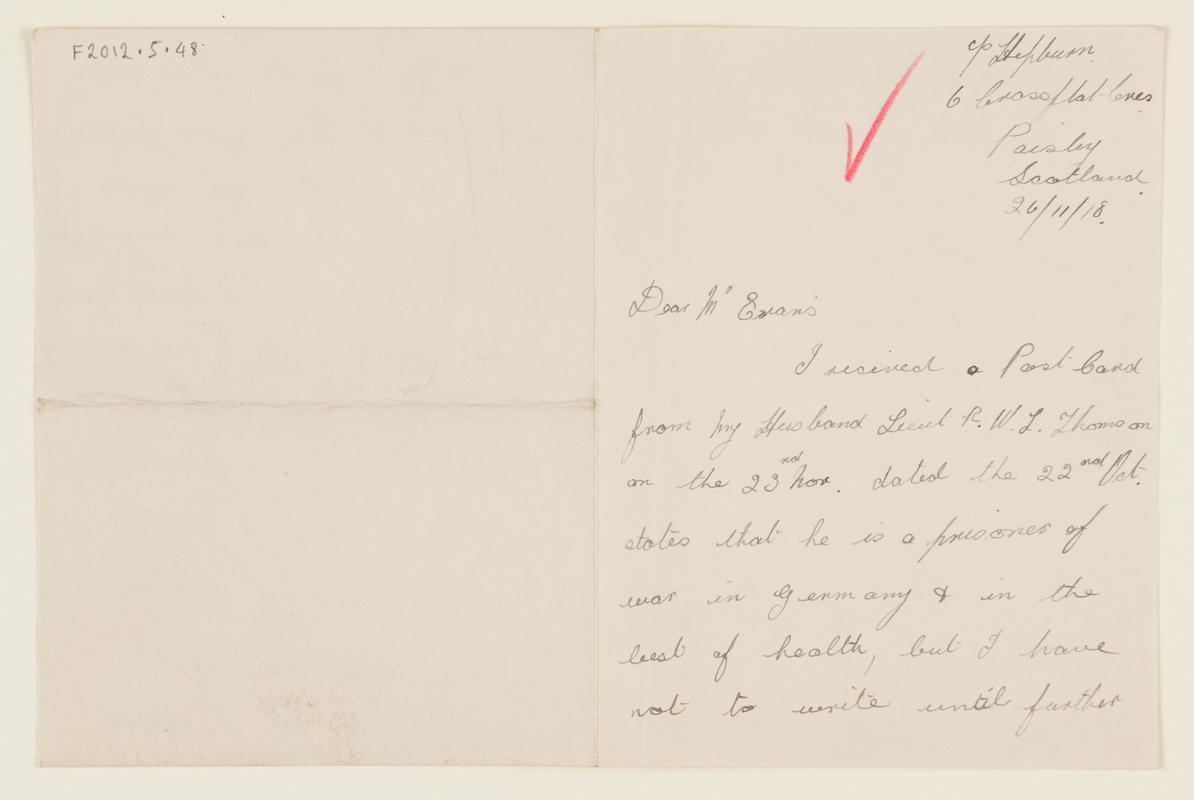 F2012.5.48
c/o Hepburn.
6 Crossflat Cres
Paisley
Scotland.
26/11/18.
Dear Mr Evans
I recieved a Post Card
from my Husband Lieut R. W. L. Thomson
on the 23rd Nov. dated the 22nd Oct.
states that he is a prisoner of
war in Germany & in the
best of health, but I have
not to write until further